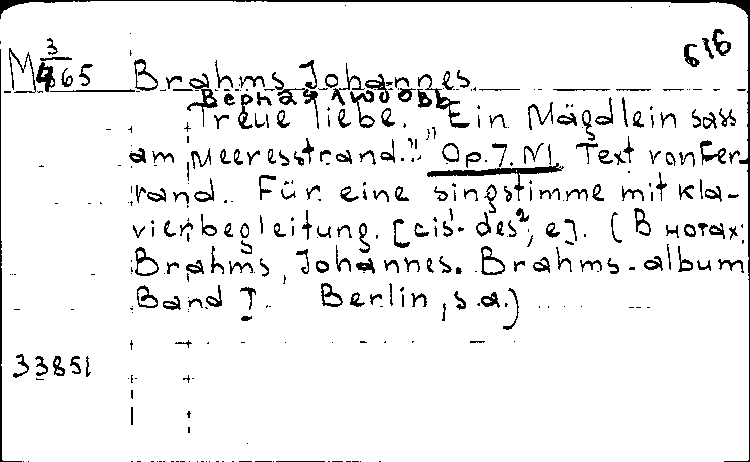 616
M 3/465 Brahms, Johannes.
Верная любовь
Treue liebe. "Ein Mägdlein sass
am Meeresstrand." Op. 7. N1. Text von Fer-
rand. Für eine singstimme mit kla-
vierbegleitung. [cis¹- des², e]. (В нотах:
Brahms, Johannes. Brahms-album
Band I. Berlin, s.a.)
33851